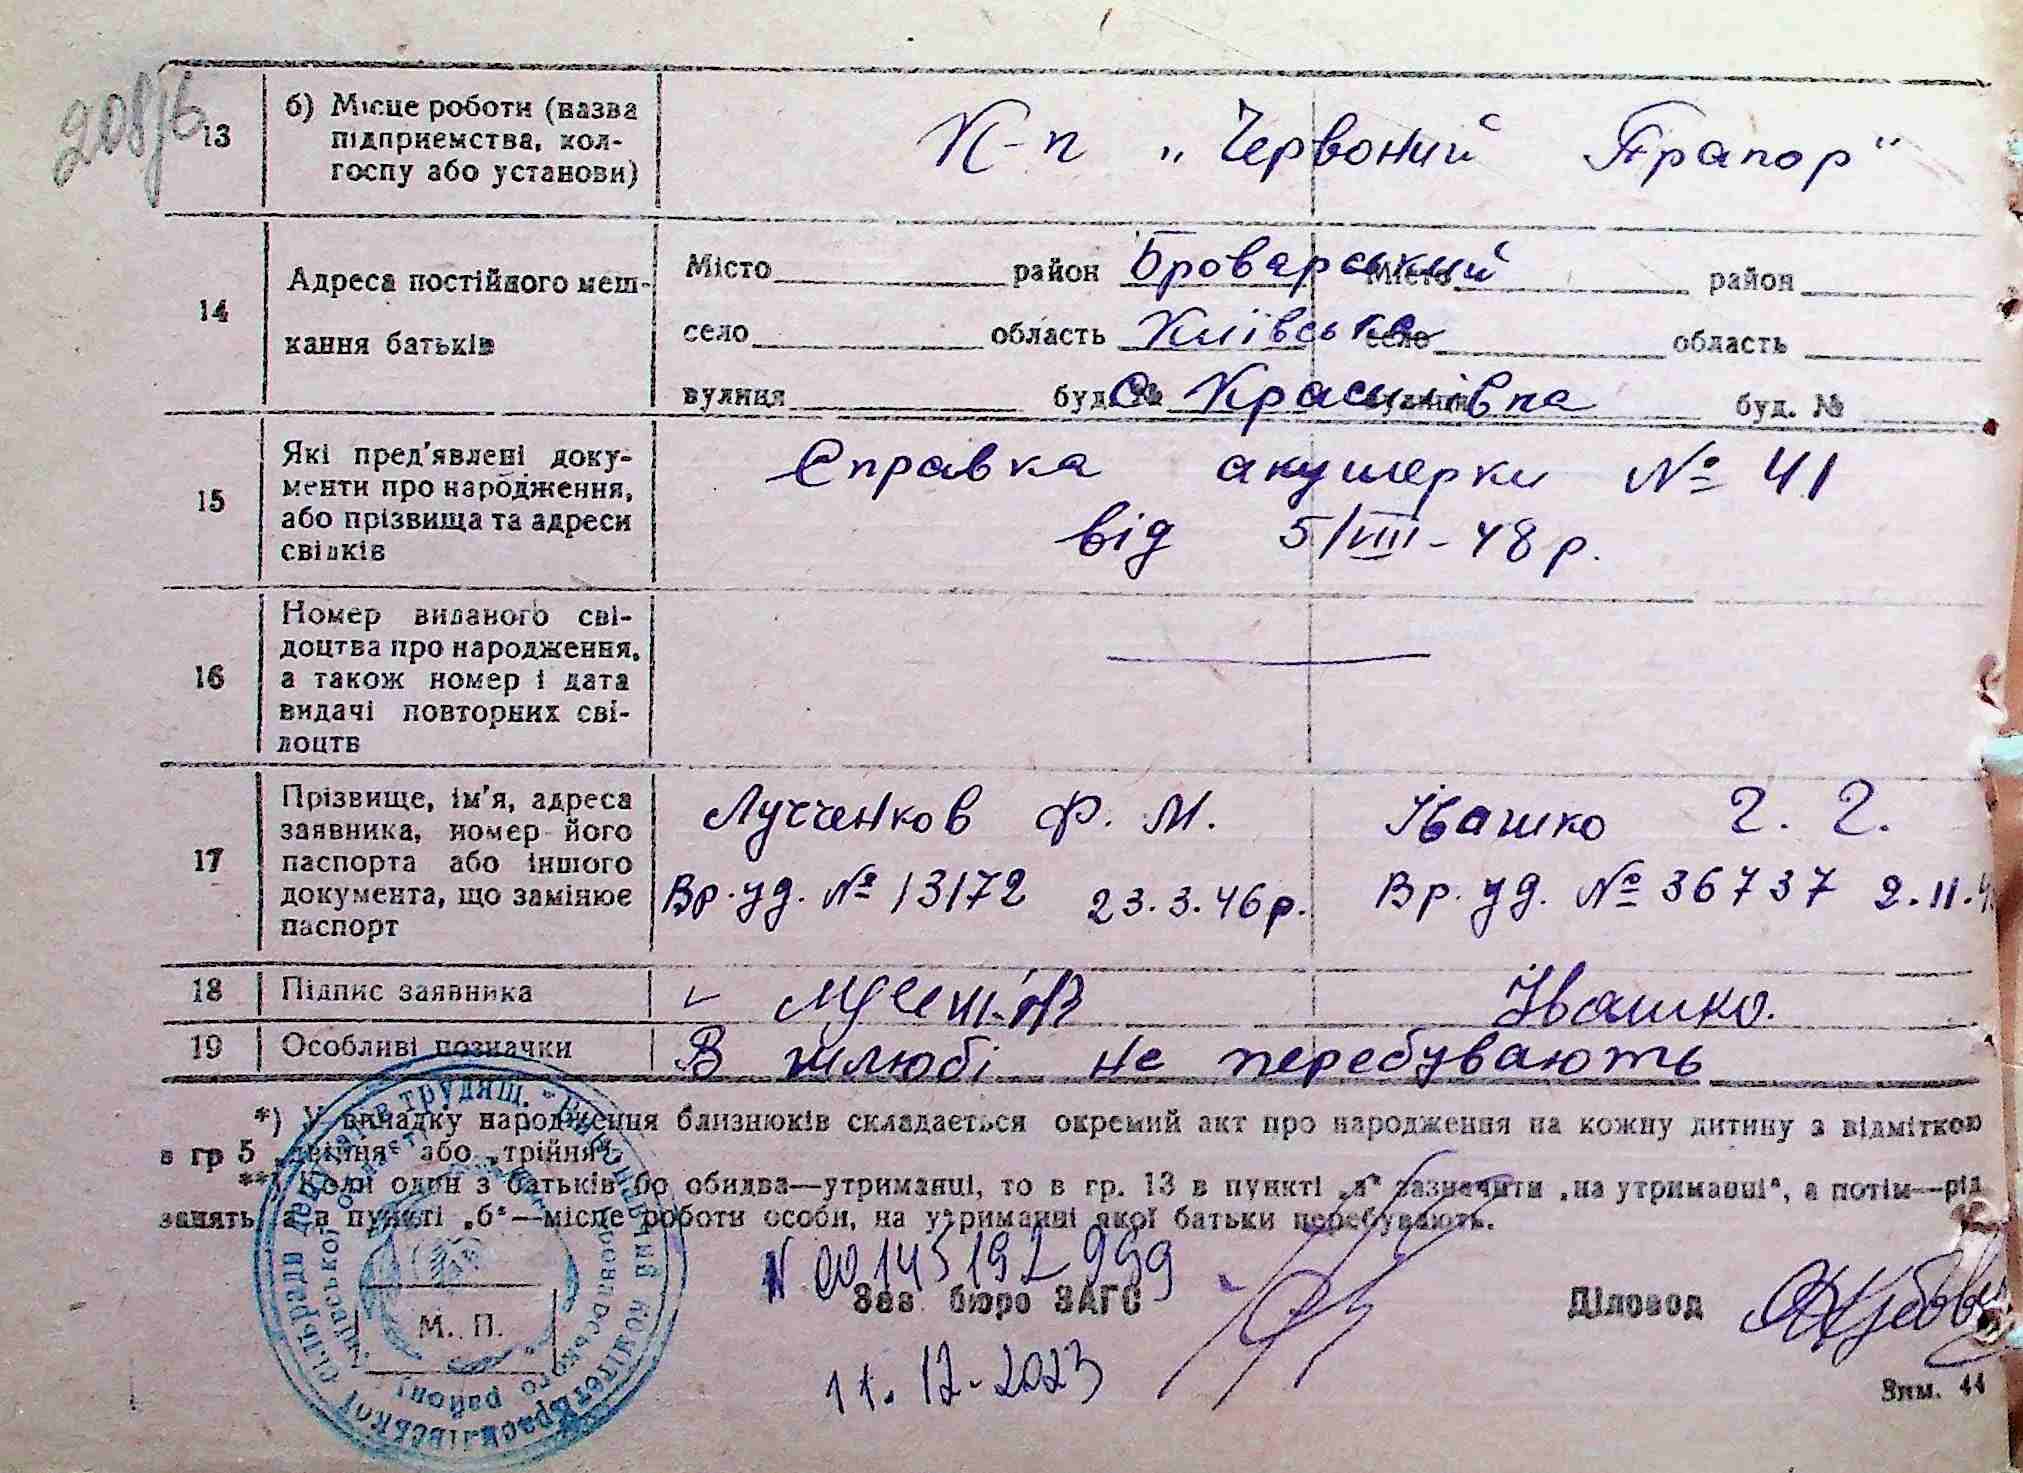 208/6
13 б) Місце роботи (назва
підприемства, кол-
госпу або установи)
К-п „Червоний Прапор"
14 Адреса постійного меш-
кання батьків
Місто район Броварський Місто район
село область Київська село область
вулиця буд. № с. Красилівка вулиця буд. №
15 Які пред'явлені доку-
менти про народження,
або прізвища та адреси
свідків
Справка акушерки № 41
від 5/VIII-48 р.
16 Номер виданого сві-
доцтва про народження,
а також номер і дата
видачі повторних сві-
доцтв
17 Прізвище, ім'я, адреса
заявника, номер його
паспорта або іншого
документа, що замінює
паспорт
Лученков Ф. М. Івашко Г. Г.
Вр. уд. № 13172 23.3.46 р. Вр. уд. № 36737 2.11.
18 Підпис заявника Івашко.
19 Особливі позначки В шлюбі не перебувають
*) У випадку народження близнюків складається окремий акт про народження на кожну дитину з відміткою
в гр 5 „двійня" або „трійня".
**) Коли один з батьків бо обидва—утриманці, то в гр. 13 в пункті „а" зазначити „на утриманні", а потім—рід
занять, а в пункті „б"—місце роботи особи, на утриманні якої батьки перебувають.
N 00145192999
Зав бюро ЗАГС Діловод
М. П.
11.12.2023
Зам. 44